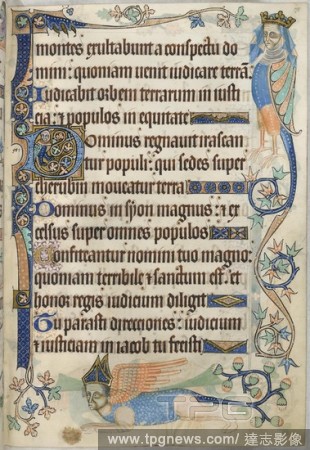 montes exultabunt a conspectu do
mini: quoniam uenit iudicare terrã.
Iudicabit orbem terrarum in iusti
cia: & populos in equitate
Dominus regnauit irascan
tur populi: qui sedes super
cherubin moueatur terra
Dominus in syon magnus: & ex
celsus super omnes populos
Confiteantur nomini tuo magno:
quoniam terribile & sanctum est: et
honor regis iudicium diligit
Tu parasti direcciones: iudicium
& iusticiam in iacob tu fecisti
TPG
www.tpgnews.com/ 達志影像